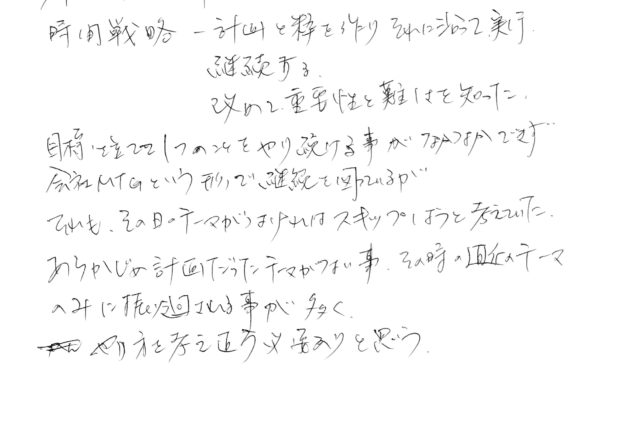 時間戦略 － 計画と枠を作り それに沿って実行
継続する。
改めて重要性と難しさを知った。
目標を立てて1つのことをやり続ける事がなかなかできず
会社MTGという形で継続を図っているが
それも、その日のテーマがなければスキップしようと考えていた。
あらかじめ計画だったテーマがない事、その時の直近のテーマ
のみに振り回される事が多く、
やり方を考え直す必要ありと思う。